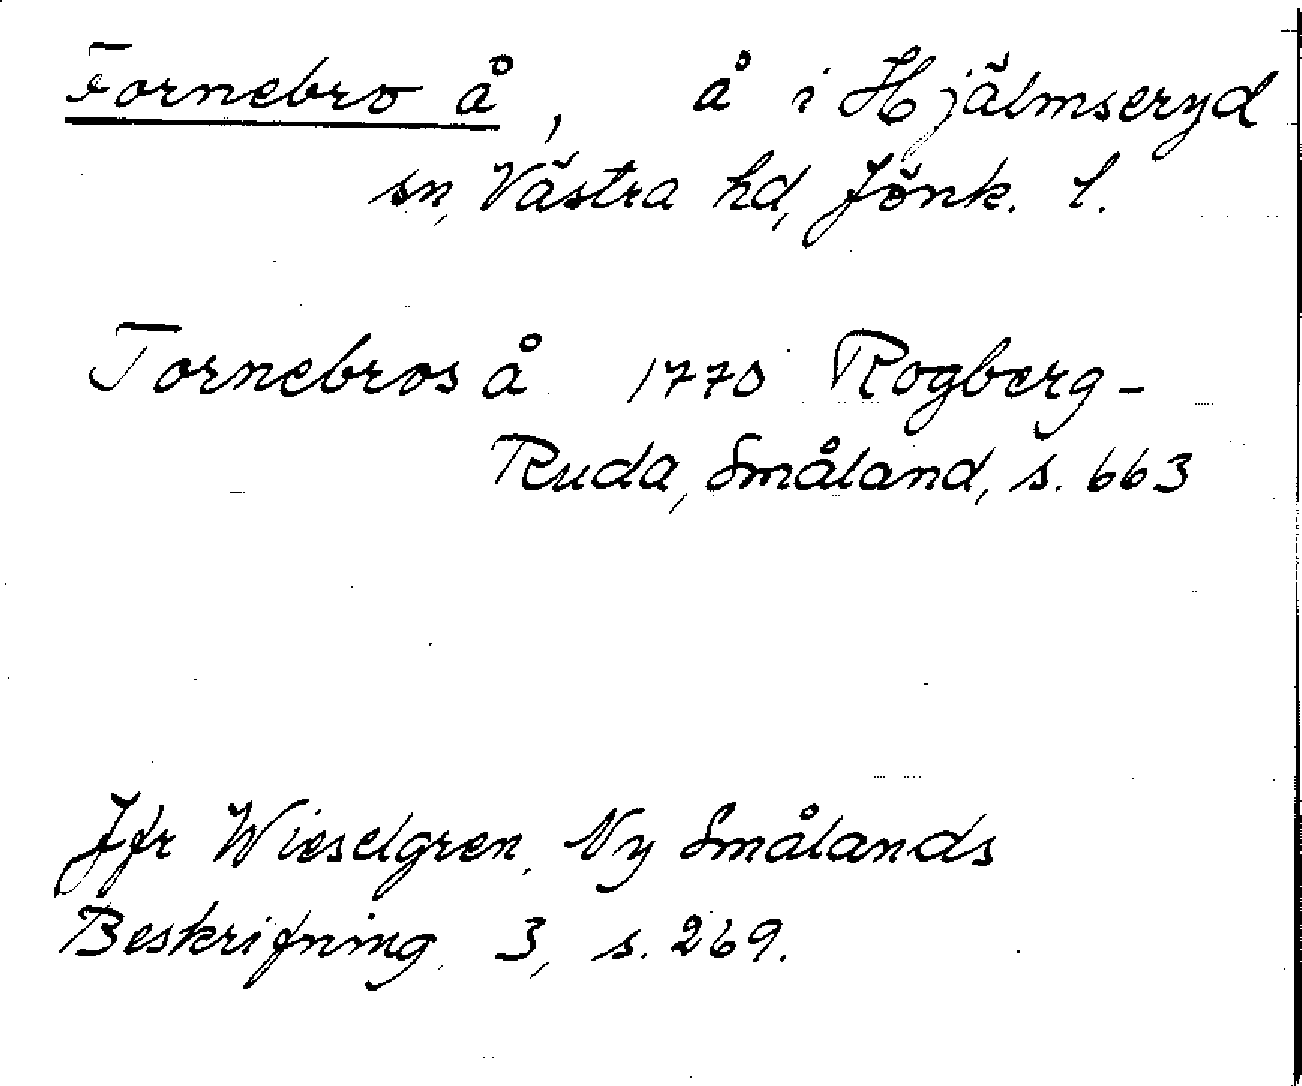 Tornebro å, å i Hjälmseryd
sn, Västra hd, Jönk. l.
Tornebros å 1770 Rogberg-
Ruda, Småland, s. 663
Jfr Wieselgren, Ny Smålands
Beskrifning, 3, s. 269.